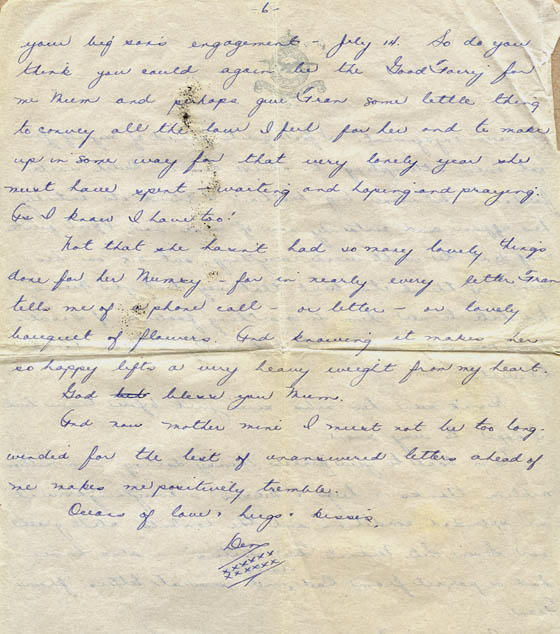 -6-
your big son's engagement - July 14. So do you
think you could again be the Good Fairy for
me Mum and perhaps give Fran some little thing
to convey all the love I feel for her and to make
up in some way for that very lonely year she
must have spent - waiting and hoping and praying.
As I know I have too!
Not that she hasn't had so many lovely things
done for her Mumsy - for in nearly every letter Fran
tells me of a phone call - or letter - or lovely
bouquet of flowers. And knowing it makes her
so happy lifts a very heavy weight from my heart.
God bless you Mum.
And now mother mine I must not be too long-
winded for the list of unanswered letters ahead of
me makes me positively tremble.
Oceans of love, hugs, kisses,
Den
xxxxxx
xxxxxx